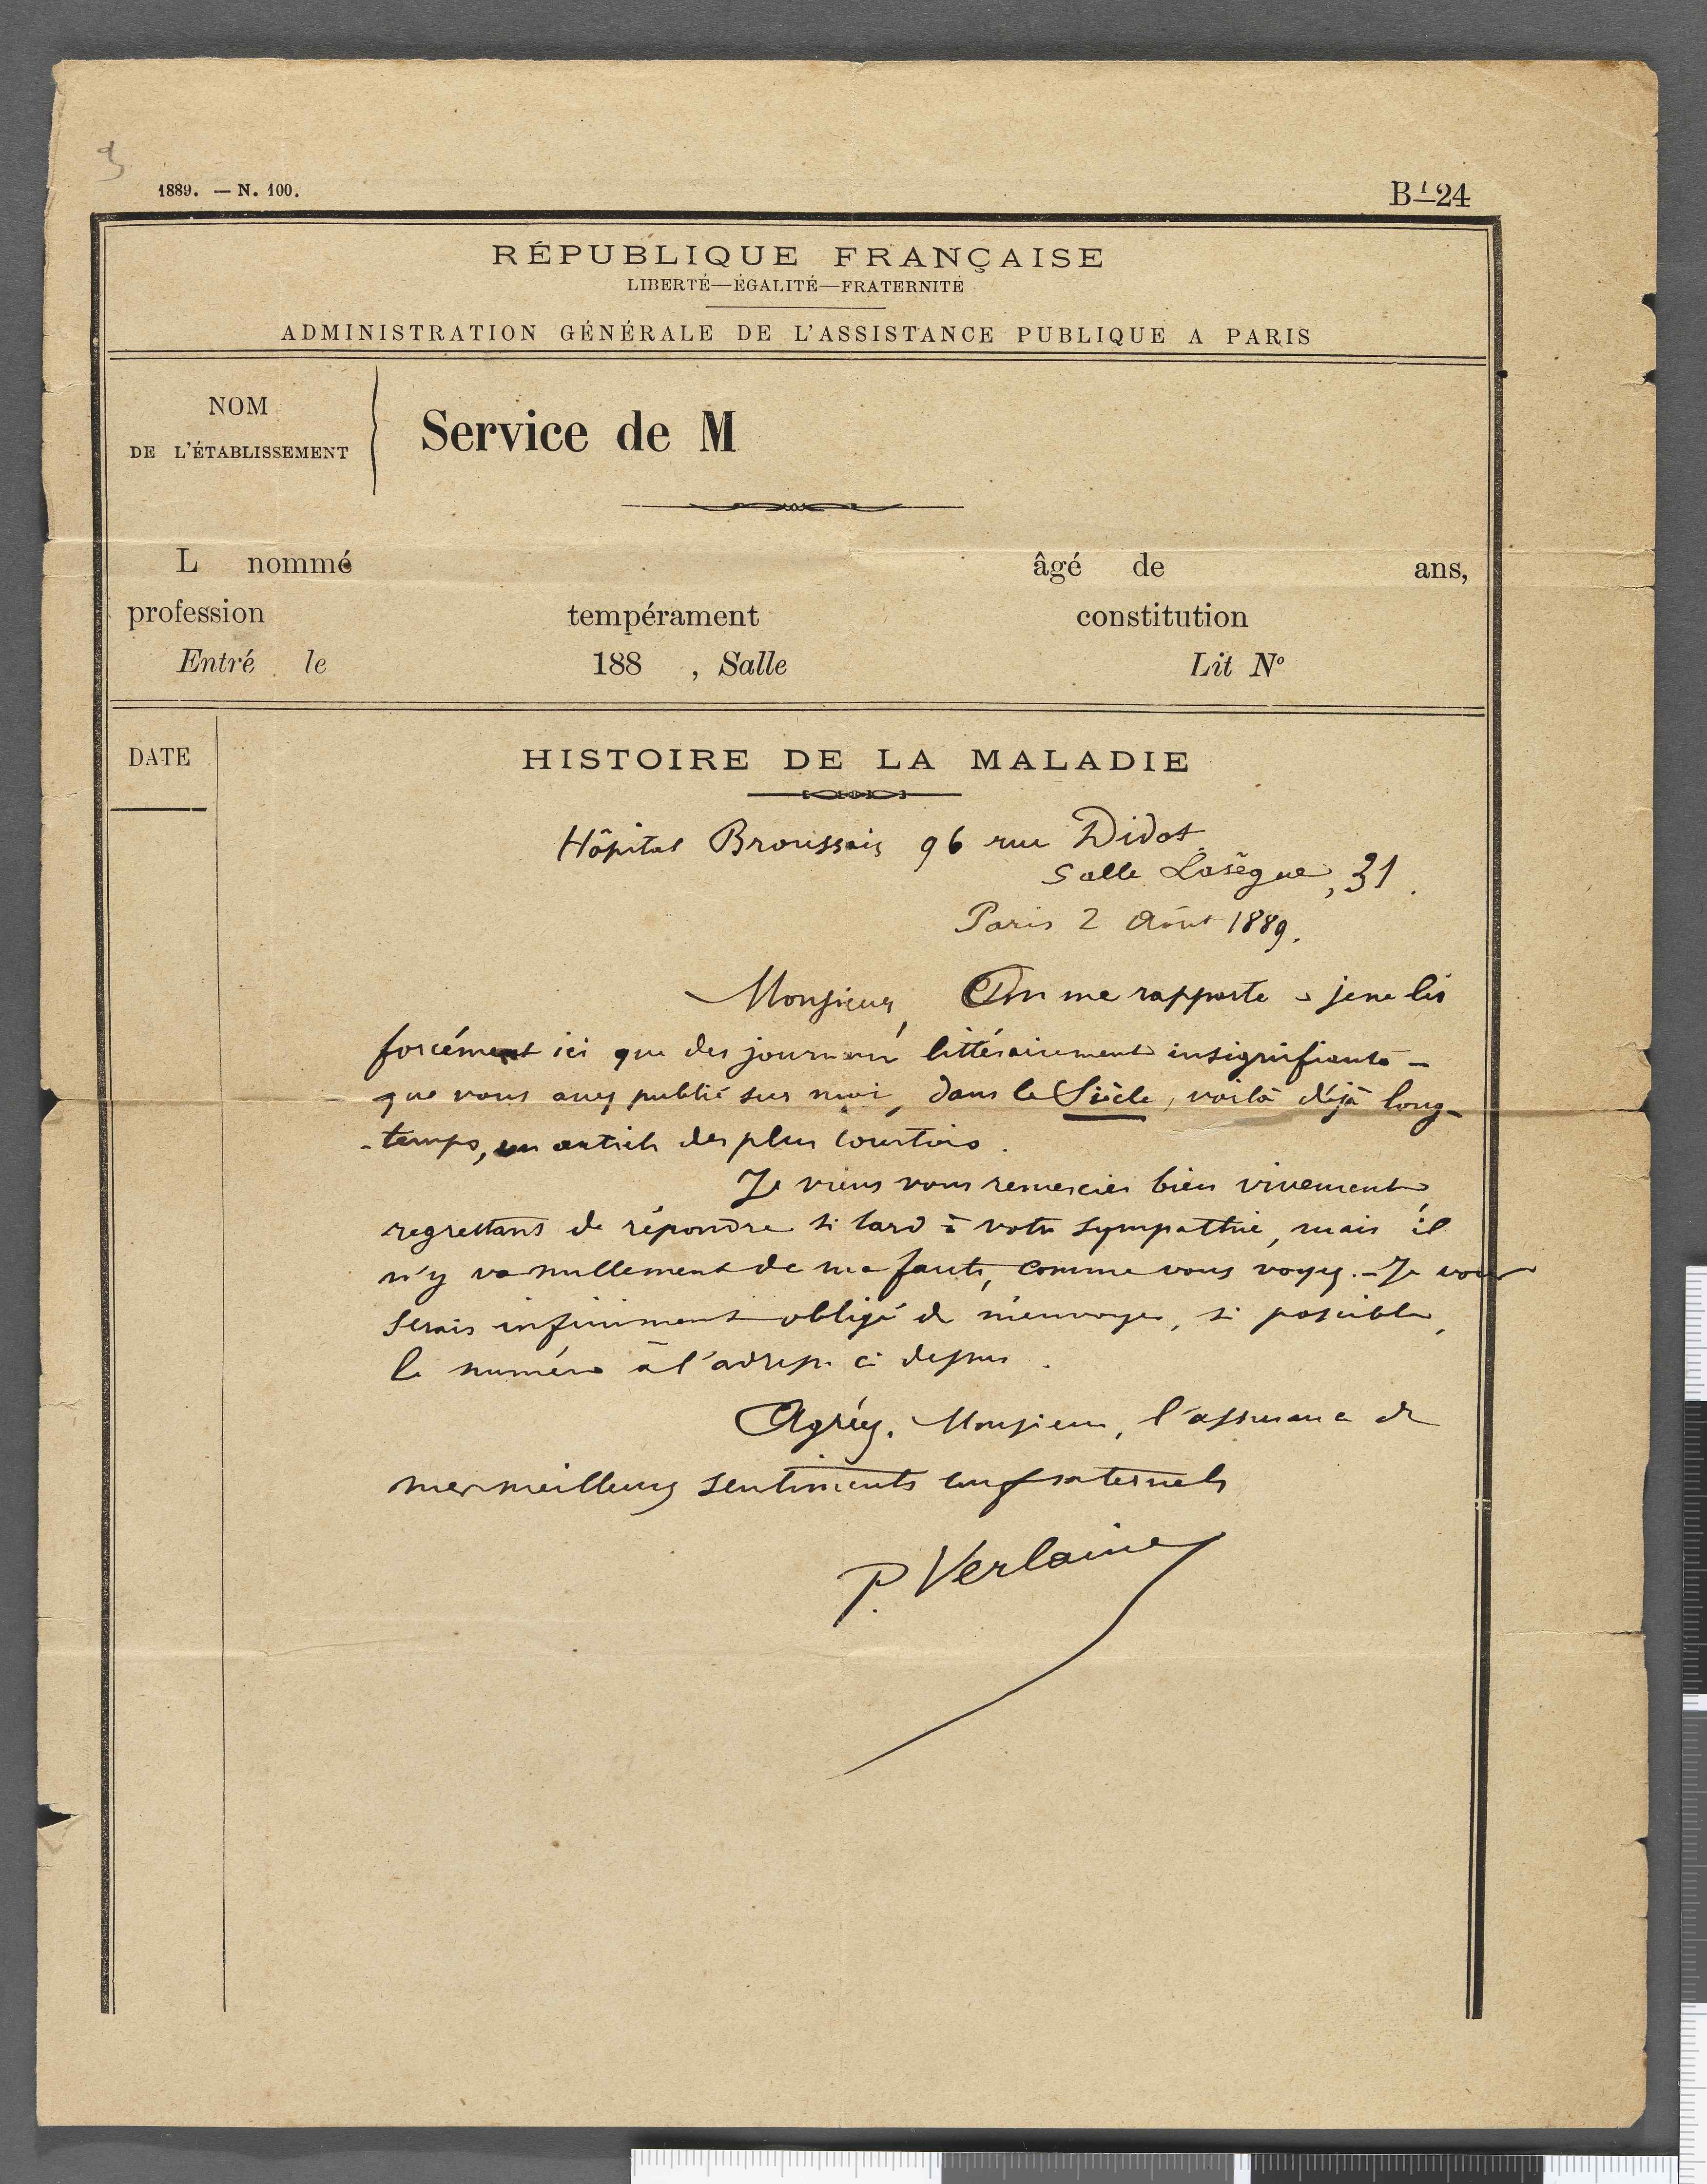 1889. — N. 100.
B¹ 24
RÉPUBLIQUE FRANÇAISE
LIBERTÉ—ÉGALITÉ—FRATERNITÉ
ADMINISTRATION GÉNÉRALE DE L'ASSISTANCE PUBLIQUE A PARIS
NOM
DE L'ÉTABLISSEMENT
Service de M
L nommé âgé de ans,
profession tempérament constitution
Entré le 188 , Salle Lit Nº
DATE
HISTOIRE DE LA MALADIE
Hôpital Broussais 96 rue Didot.
Salle Lasègue, 31.
Paris 2 Août 1889.
Monsieur, On me rapporte – je ne lis
forcément ici que des journaux littérairement insignifiants –
que vous avez publié sur moi, dans le Siècle, voilà déjà long-
-temps, un article des plus courtois.
Je viens vous remercier bien vivement
regrettant de répondre si tard à votre sympathie, mais il
n'y va nullement de ma faute, comme vous voyez. – Je vous
serais infiniment obligé de m'envoyer, si possible,
le numéro à l'adresse ci dessus.
Agréez, Monsieur, l'assurance de
mes meilleurs sentiments confraternels
P. Verlaine